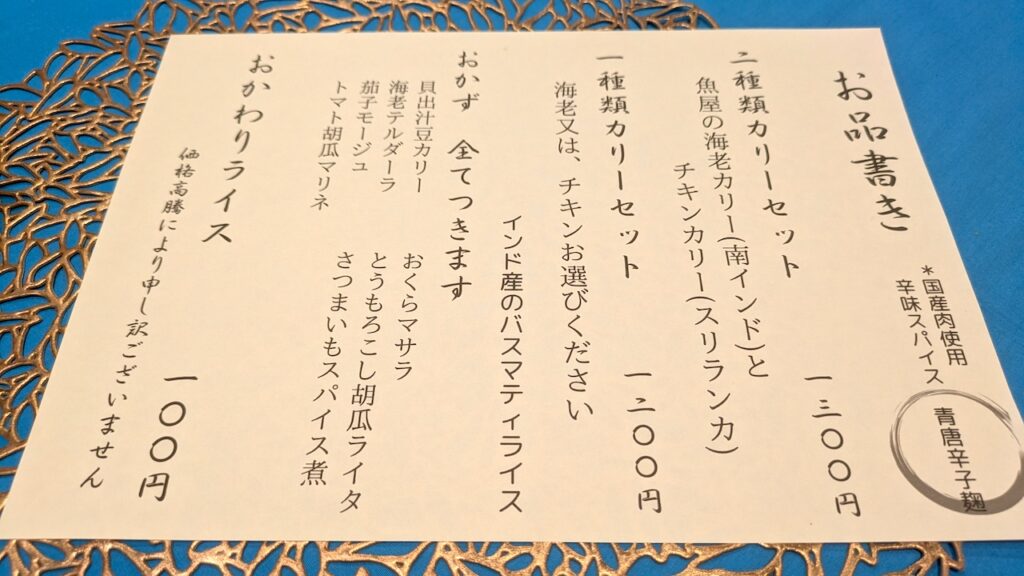 お品書き
*国産肉使用
辛味スパイス
青唐辛子麹
二種類カリーセット 一三〇〇円
魚屋の海老カリー(南インド)と
チキンカリー(スリランカ)
一種類カリーセット 一二〇〇円
海老又は、チキンお選びください
インド産のバスマティライス
おかず 全てつきます
貝出汁豆カリー
海老テルダーラ
茄子モージュ
トマト胡瓜マリネ
おくらマサラ
とうもろこし胡瓜ライタ
さつまいもスパイス煮
おかわりライス 一〇〇円
価格高騰により申し訳ございません